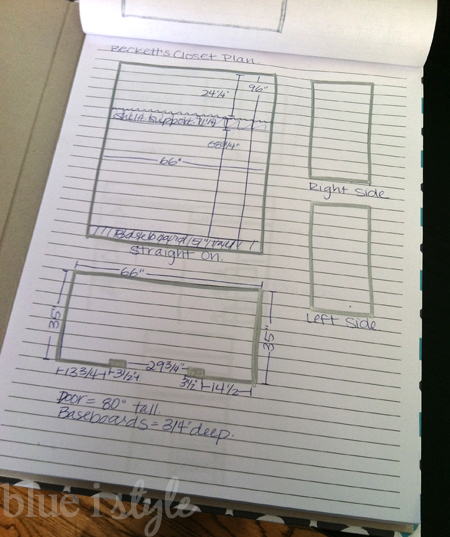 Beckett's Closet Plan
24¼"
96"
Shelf Support
66"
Baseboard
Straight On.
Right Side
Left Side
66"
35"
35"
29¾"
13¾
3½"
3½"
14½
Door = 80" tall.
Baseboards = 3/4" deep.
blue i style